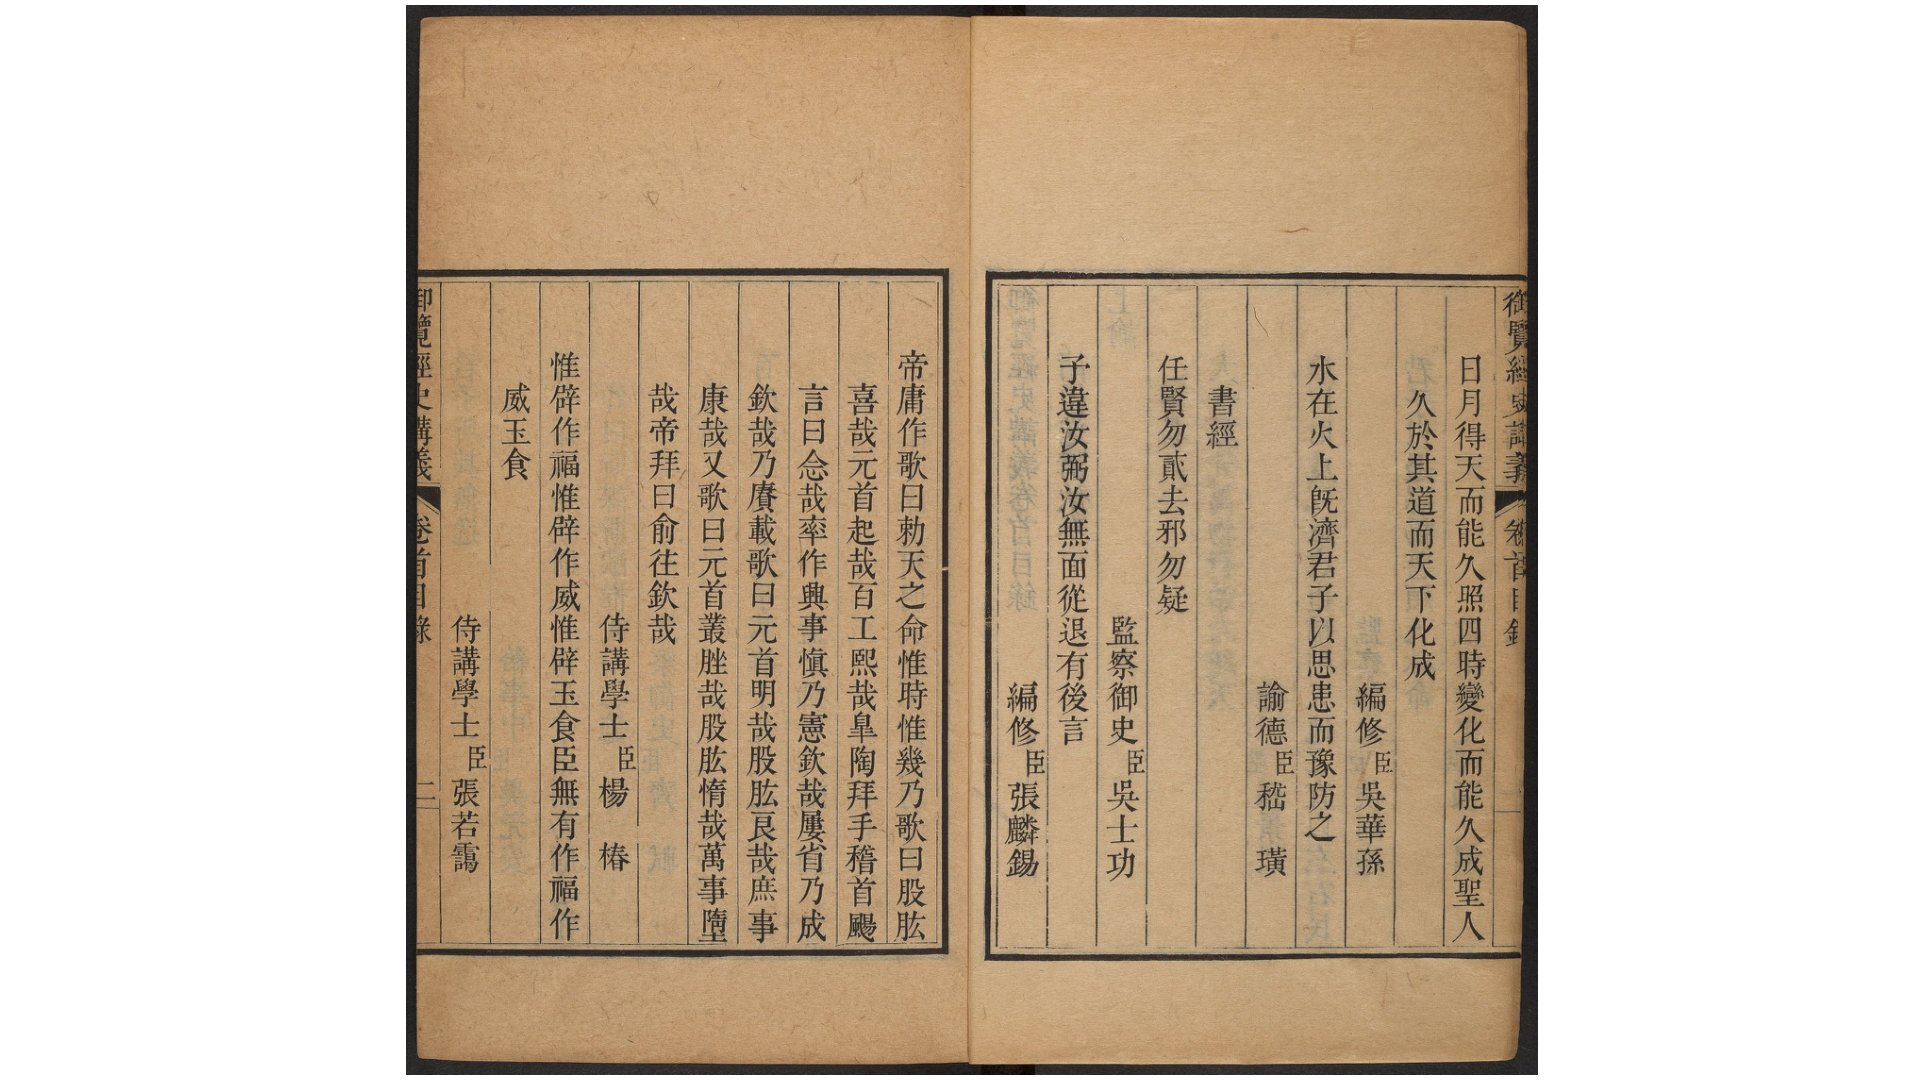 御覽經史講義 卷首目錄
日月得天而能久照四時變化而能久成聖人
久於其道而天下化成
編修臣吳華孫
水在火上旣濟君子以思患而豫防之
諭德臣嵇璜
書經
任賢勿貳去邪勿疑
監察御史臣吳士功
子違汝弼汝無面從退有後言
編修臣張麟錫
帝庸作歌曰勅天之命惟時惟幾乃歌曰股肱
喜哉元首起哉百工熙哉臯陶拜手稽首颺
言曰念哉率作興事愼乃憲欽哉屢省乃成
欽哉乃賡載歌曰元首明哉股肱良哉庶事
康哉又歌曰元首叢脞哉股肱惰哉萬事墮
哉帝拜曰俞往欽哉
侍講學士臣楊椿
惟辟作福惟辟作威惟辟玉食臣無有作福作
威玉食
侍講學士臣張若靄
御覽經史講義 卷首目錄 二